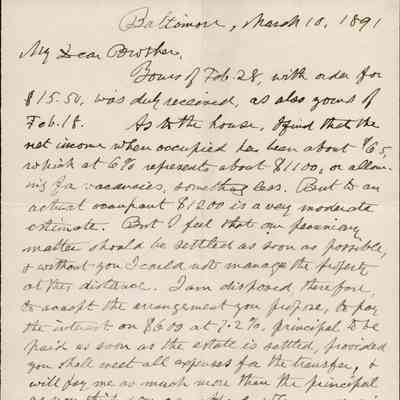 Baltimore, March 10, 1891
My Dear Brother,
Yours of Feb. 28, with order for
$15.50, was duly received, as also yours of
Feb. 18. As to the house, I find that the
net income when occupied has been about $65,
which at 6% represents about $1100, or allow-
ing for vacancies, something less. But to an
actual occupant $1200 is a very moderate
estimate. But I feel that our pecuniary
matter should be settled as soon as possible,
& without you I could not manage the property
at this distance. I am disposed therefore,
to accept the arrangement you propose, to pay
the interest on $600 at 7.2%, principal to be
paid as soon as the estate is settled, provided
you shall meet all expenses for the transfer, &
will pay me as much more than the principal
as you think you